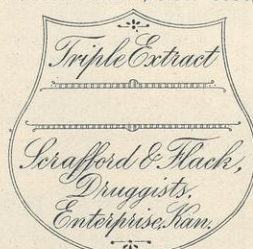 Triple Extract
Scrafford & Flack,
Druggists,
Enterprise, Kan.